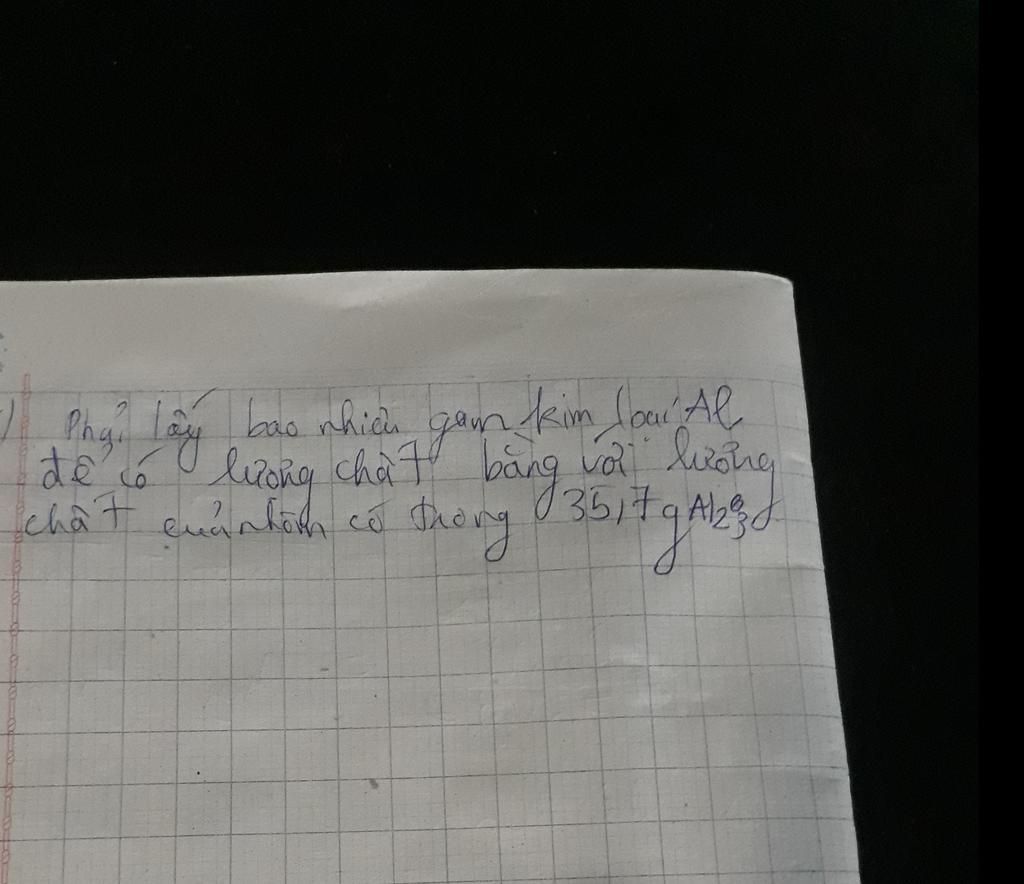 ) Phải lấy bao nhiêu gam kim loại Al
để có lượng chất bằng với lượng
chất của nhôm có trong 35,7g Al2O3